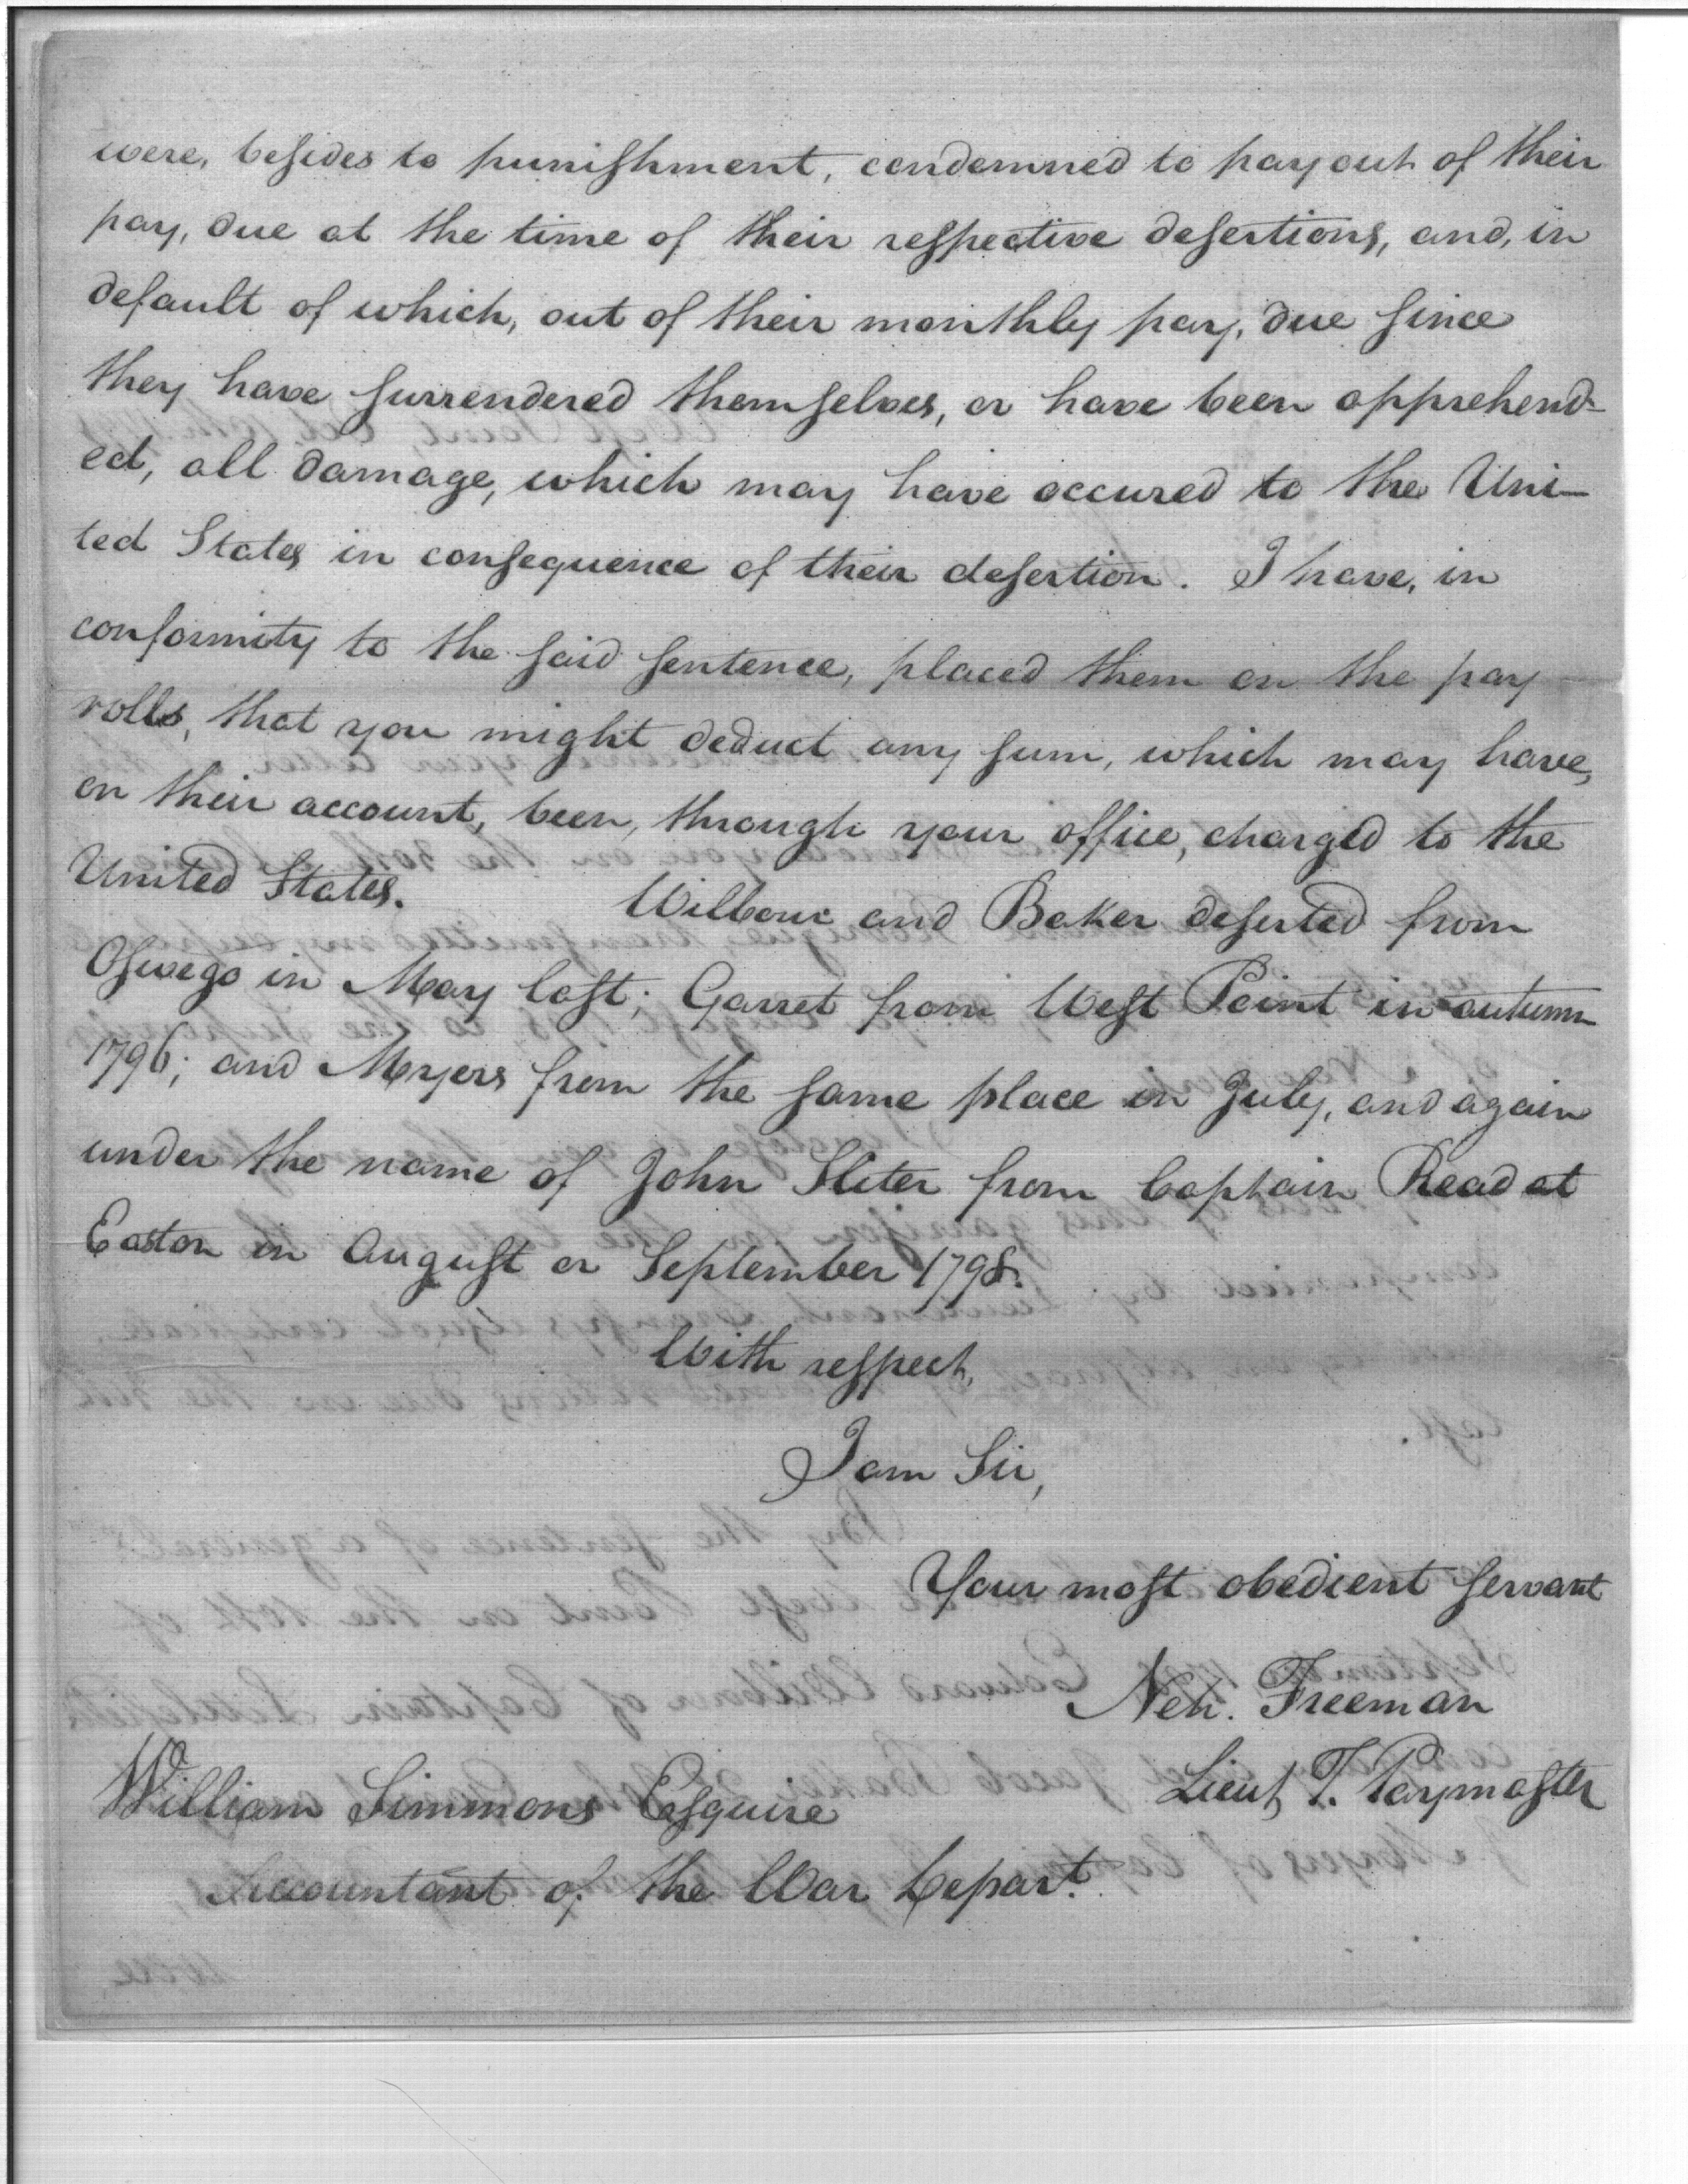 were, besides to punishment, condemned to pay out of their
pay, due at the time of their respective desertions, and, in
default of which, out of their monthly pay, due since
they have surrendered themselves, or have been apprehend-
ed, all damage, which may have accured to the Uni-
ted States in consequence of their desertion. I have, in
conformity to the said sentence, placed them on the pay
rolls, that you might deduct any sum, which may have,
on their account, been, through your office, charged to the
United States. Wilbour and Baker deserted from
Oswego in May last; Garret from West Point in autumn
1796; and Myers from the same place in July, and again
under the name of John Sliter from Captain Read at
Easton in August or September 1798.
With respect,
I am Sir,
Your most obedient servant
Neh. Freeman
Lieut, T. Paymaster
William Simmons Esquire
Accountant of the War Depart.